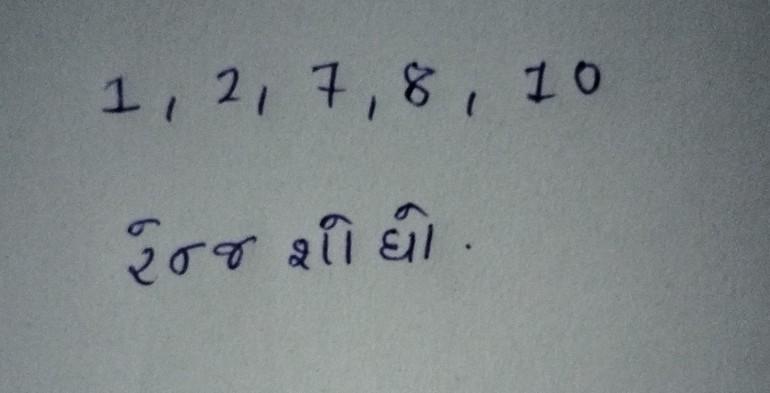 1, 2, 7, 8, 10
રેન્જ શોધો.